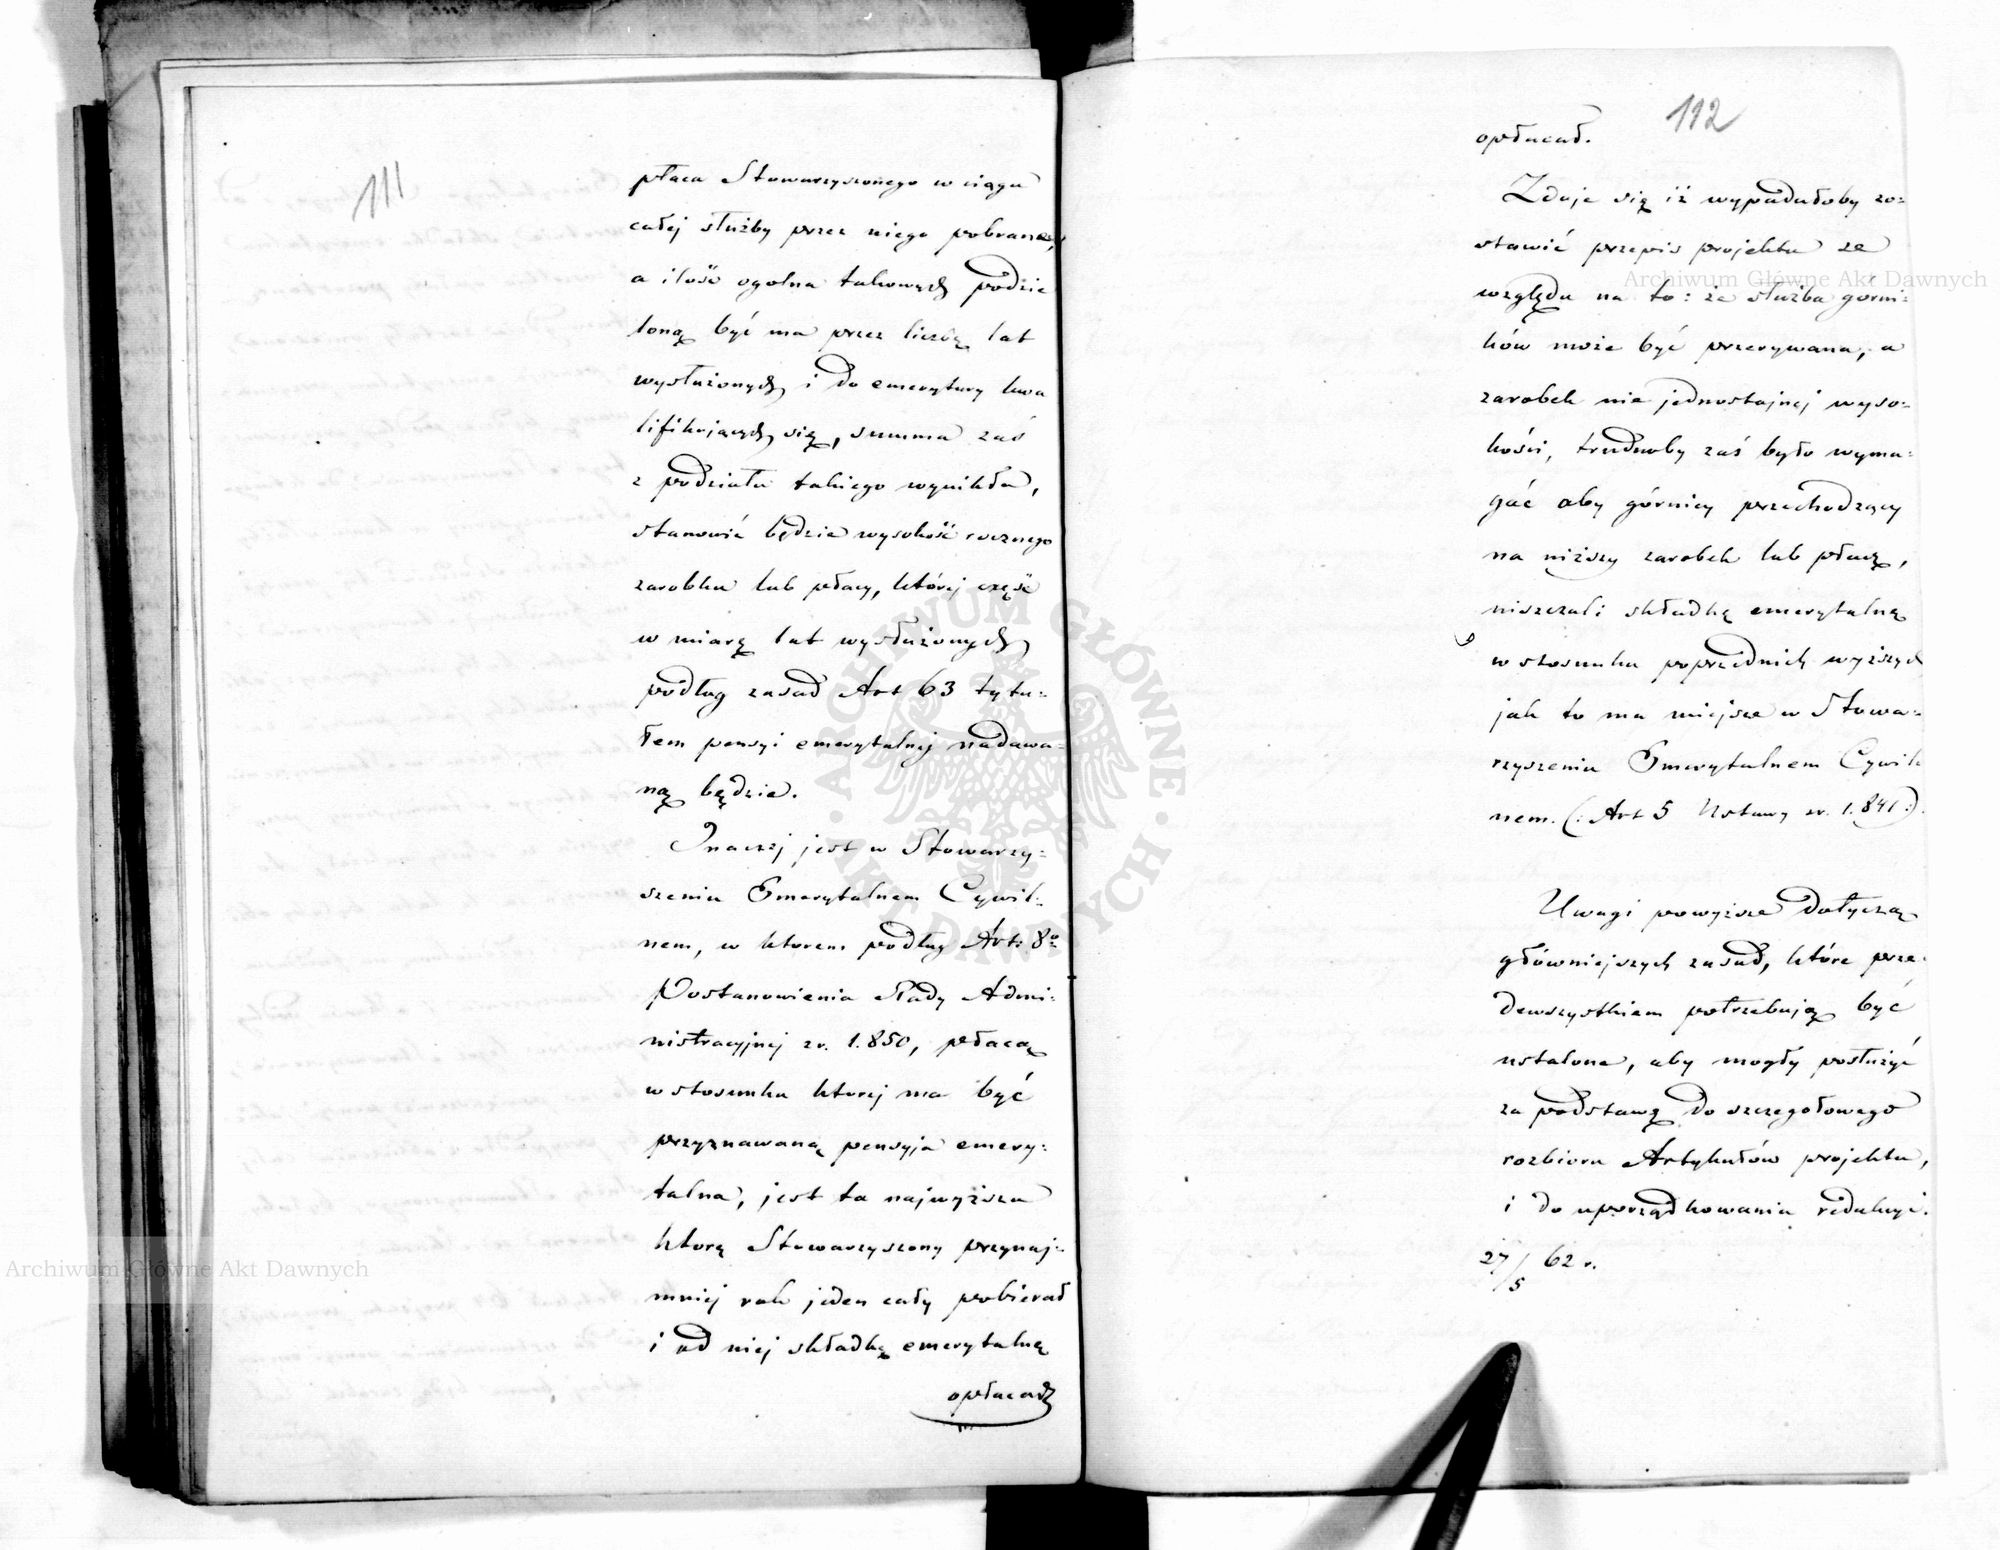 111
płaca Stowarzyszonego w ciągu
całej służby przez niego pobrane,
a ilość ogolna takowych podzie
loną być ma przez liczbę lat
wysłużonych i do emerytury kwa
lifikujących się, summa zaś
z podziału takiego wynikła,
stanowić będzie wysokość rocznego
zarobku lub płacy, której część
w miarę lat wysłużonych
podług zasad Art 63 tytu-
łem pensyi emerytalnej nadawa-
ną będzie.
Inaczej jest w Stowarzy-
szeniu Emerytalnem Cywil-
nem, w ktorem podług Art: 8º
Postanowienia Rady Admi-
nistracyjnej z r. 1.850, płacą
w stosunku ktorej ma być
przyznawaną pensyja emery-
talna, jest ta najwyższa
ktorą Stowarzyszony przynaj-
mniej rok jeden cały pobierał
i od niej składkę emerytalną
opłacał
112
opłacał.
Zdaje się iż wypadałoby zo-
stawić przepis projektu ze
względu na to: że służba gorni-
ków może być przerywana, a
zarobek nie jednostajnej wyso-
kości, trudnoby zaś było wyma-
gać aby górnicy przechodzący
na niższy zarobek lub płacę,
niszczali składkę emerytalną
w stosunku poprzednich wyższych
jak to ma miejsce w Stowa-
rzyszeniu Emerytalnem Cywil
nem. (: Art 5 Ustawy z r. 1.841 :).
Uwagi powyższe dotyczą
główniejszych zasad, które prze-
dewszystkiem potrzebują być
ustalone, aby mogły posłużyć
za podstawę do szczegołowego
rozbioru Artykułów projektu,
i do uporządkowania redakcyi.
27/5 62 r.
Archiwum Główne Akt Dawnych
Archiwum Główne Akt Dawnych
ARCHIWUM GŁÓWNE AKT DAWNYCH